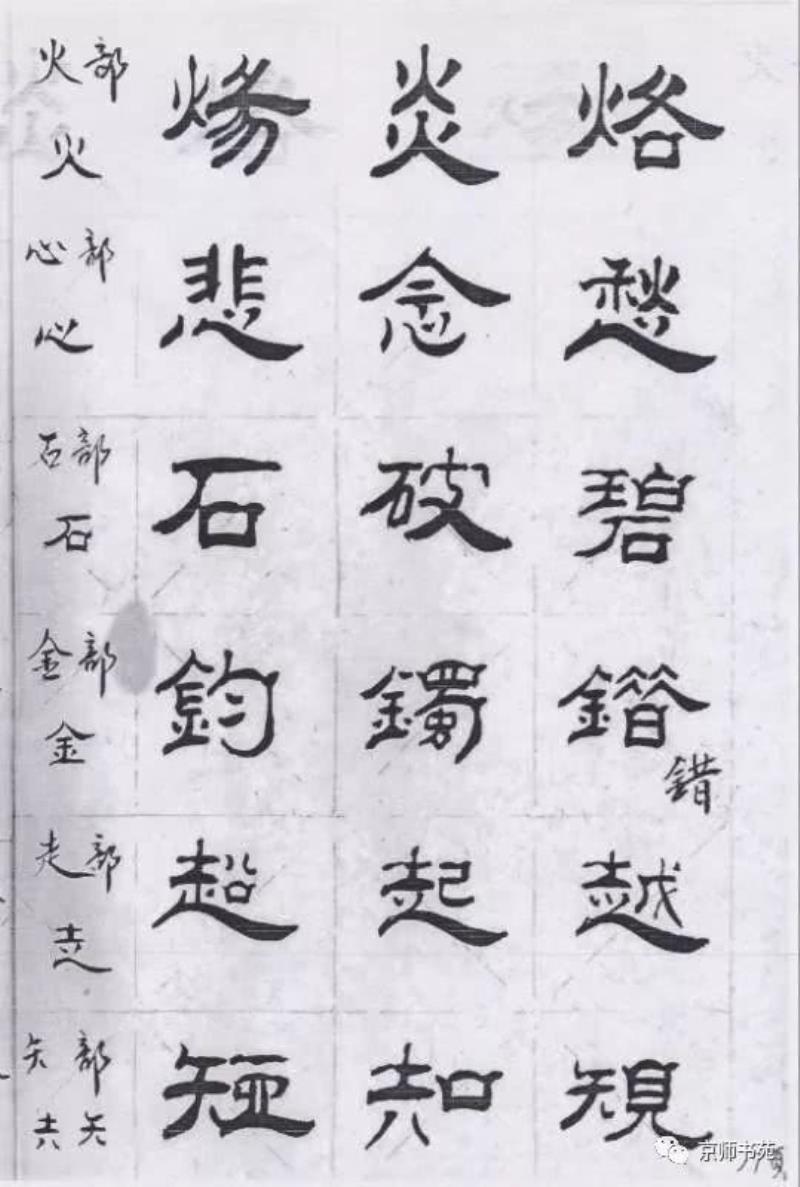 火部 煬 炎 烙
火
心部 悲 念 愁
心
石部 石 破 碧
石
金部 鈞 鐲 錯
金 錯
走部 超 起 越
走
矢部 短 知 規
矢
京师书苑